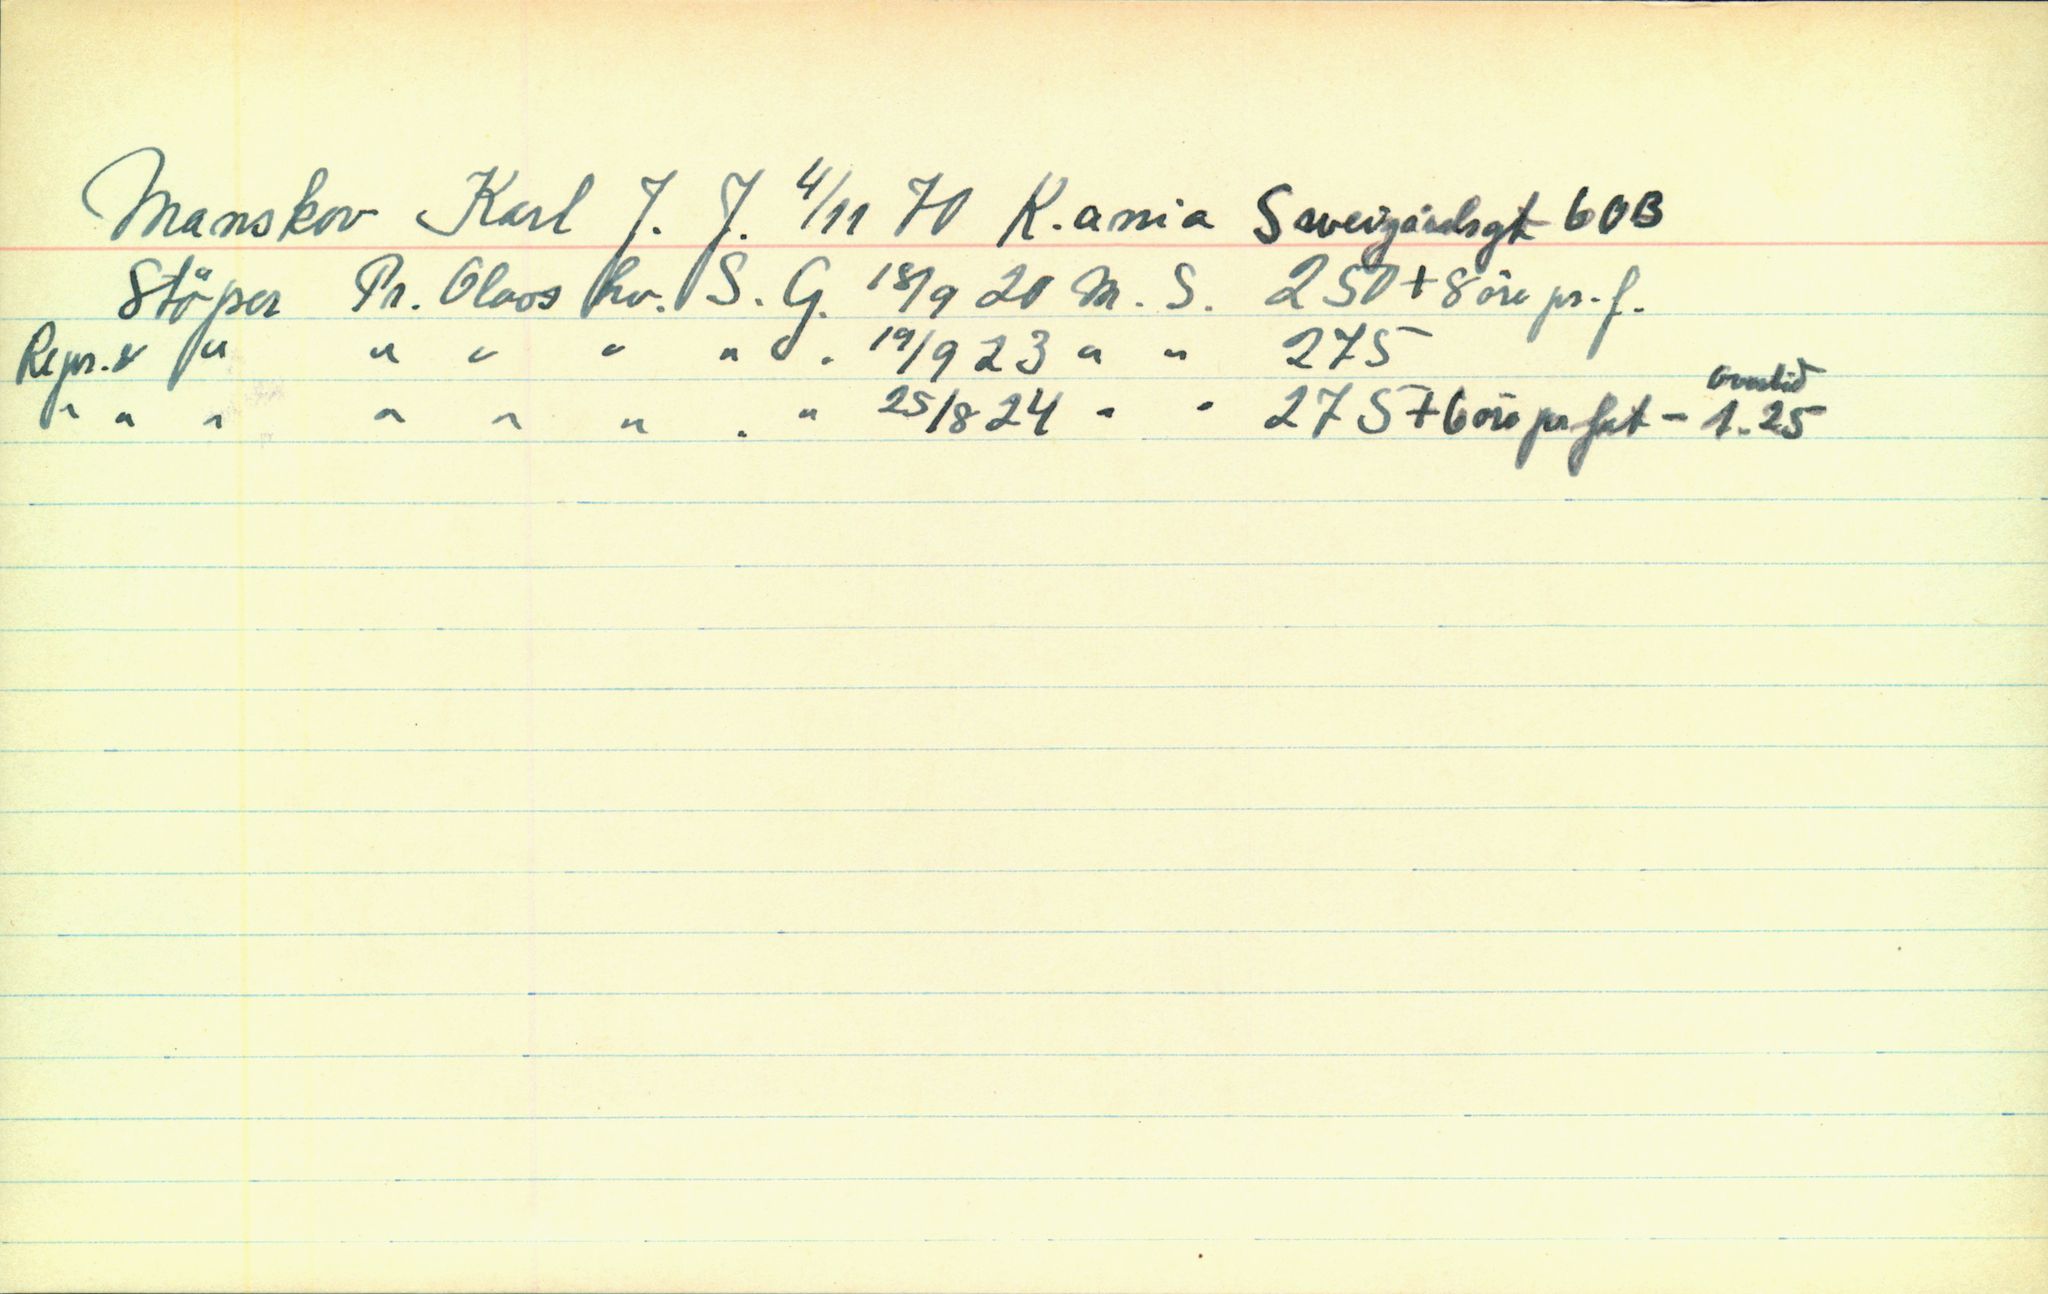 Manskov Karl J. J. 4/11 70 K.ania Sweigårdsgt 60B
Støper Pr. Olavs hv. S. G. 18/9 20 M. S. 250 + 8 öre pr. f.
Repr. & " " " " " " . 19/9 23 " " 275
" " " " " " . " 25/8 24 " " 275 + 6 öre pr fat - 1.25 overtid